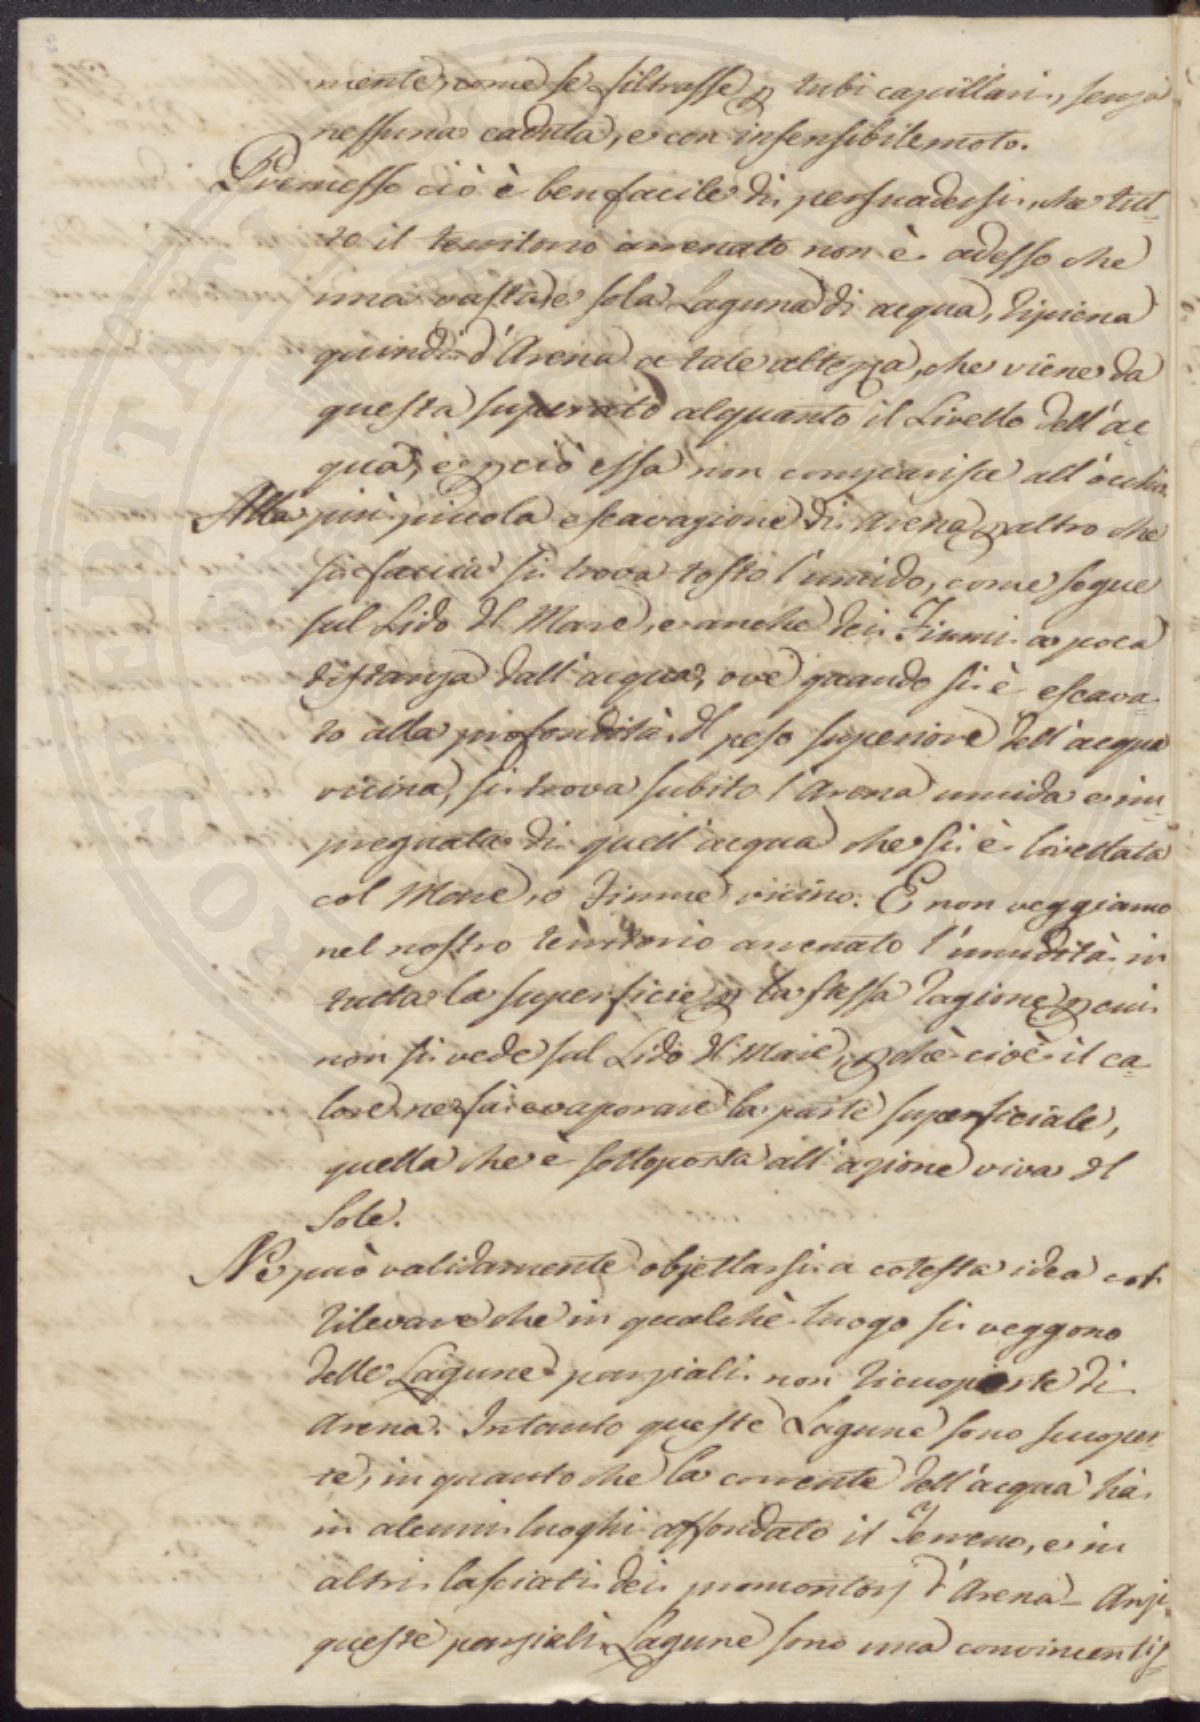 mente, come se filtrasse p tubi capillari, senza
nessuna caduta, e con insensibile moto.
Premesso ciò è ben facile di persuadersi, che tut-
to il territorio arrenato non è adesso che
una vasta, e sola Laguna di acqua, ripiena
quindi d'Arena a tale altezza, che viene da
questa superato alquanto il Livello dell'ac-
qua, e pciò essa non comparisce all'occhio.
Alla più piccola escavazione di Arena, p altro che
si faccia si trova tosto l'umido, come segue
sul Lido dl Mare, e anche dei Fiumi a poca
distanza dall'acqua, ove quando si è escava-
to alla profondità dl peso superiore dell'acqua
vicina, si trova subito l'Arena umida e im-
pregnata di quell'acqua che si è livellata
col Mare, o Fiume vicino. E non veggiamo
nel nostro territorio arrenato l'umidità in
tutta la superficie p la stessa ragione p cui
non si vede sul Lido dl Mare, pchè cioè il ca-
lore ne fà evaporare la parte superficiale,
quella che è sottoposta all'azione viva dl
Sole.
Ne può validamente objettarsi a cotesta idea col
rilevare che in qualche luogo si veggono
delle Lagune parziali non ricuoperte di
Arena. Intanto queste Lagune sono scuoper-
te, in quanto che la corrente dell'acqua hà
in alcuni luoghi affondato il Terreno, e in
altri lasciati dei promontorj d'Arena - Anzi
queste parziali Lagune sono una convincentis-